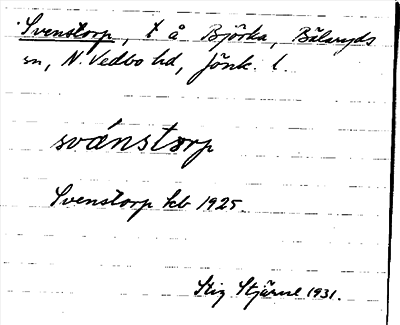 Svenstorp, t å Björka, Bälaryds
sn, N. Vedbo hd, Jönk. l.
svänstorp
Svenstorp kb 1925
Stig Stjärne 1931.